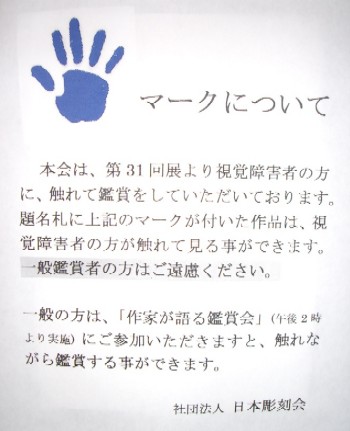 マークについて
本会は、第31回展より視覚障害者の方
に、触れて鑑賞をしていただいております。
題名札に上記のマークが付いた作品は、視
覚障害者の方が触れて見る事ができます。
一般鑑賞者の方はご遠慮ください。
一般の方は、「作家が語る鑑賞会」(午後2時
より実施)にご参加いただきますと、触れな
がら鑑賞する事ができます。
社団法人 日本彫刻会